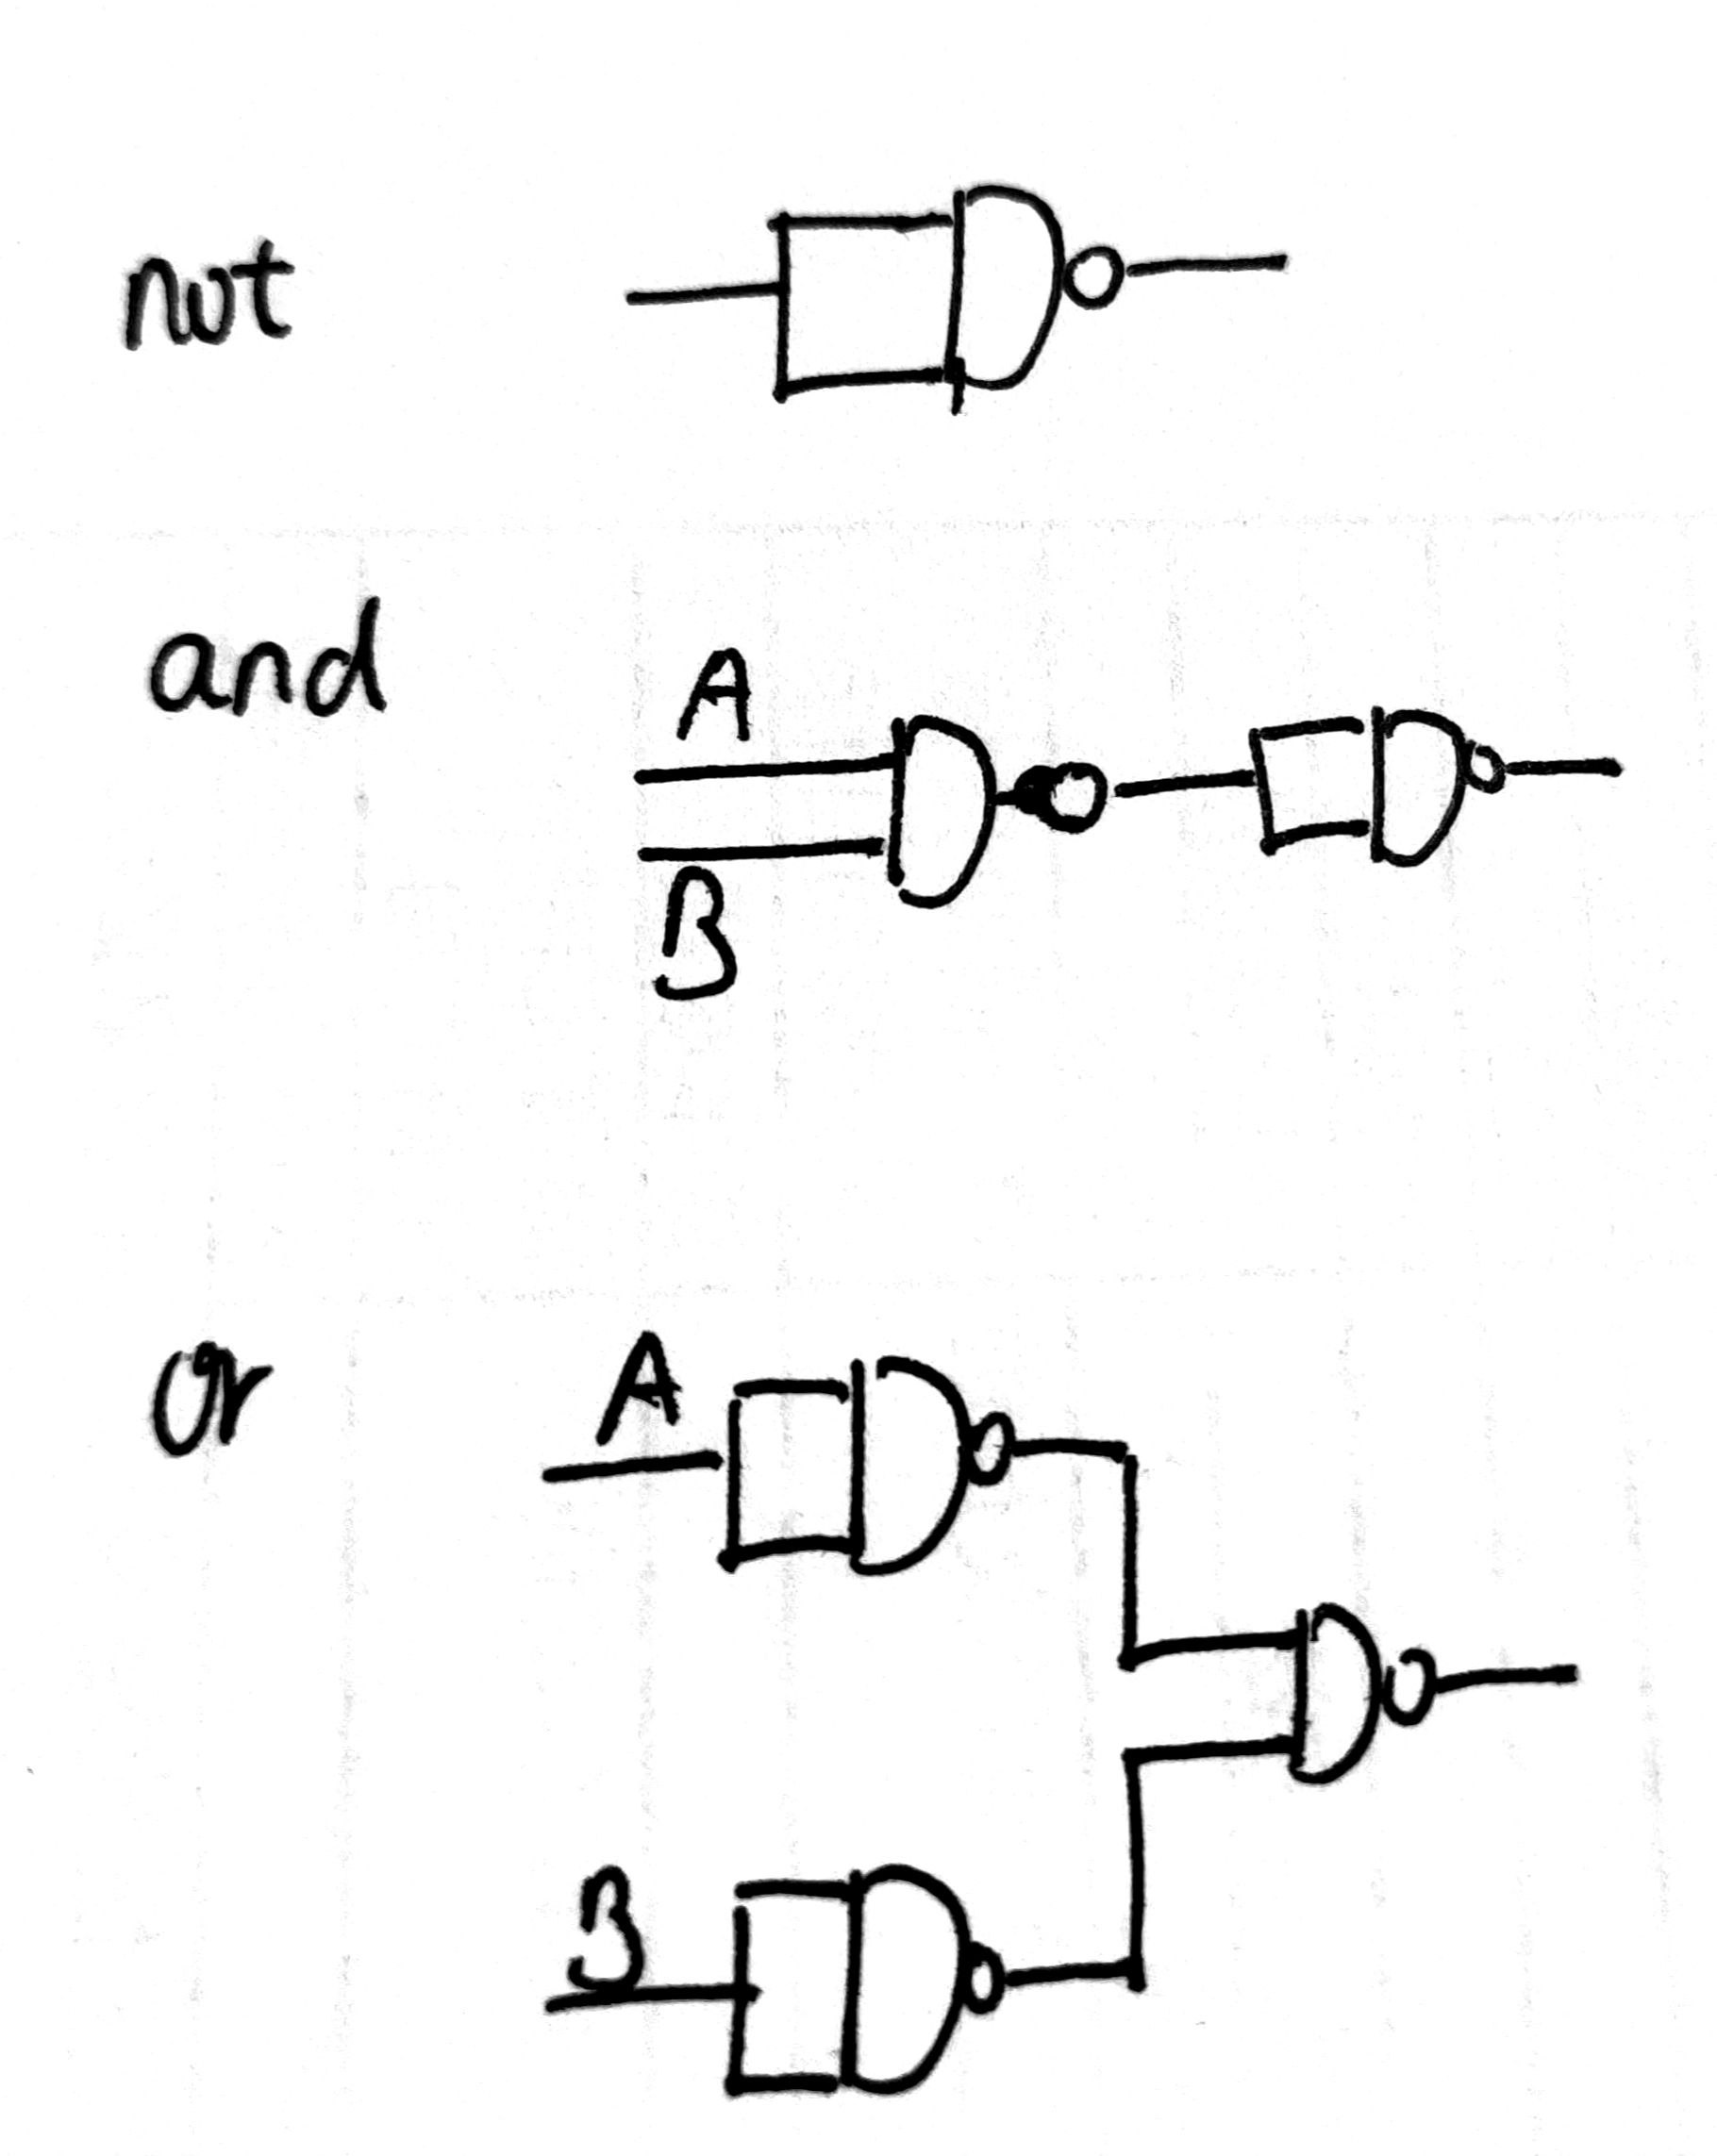 not
and
A
B
or
A
B